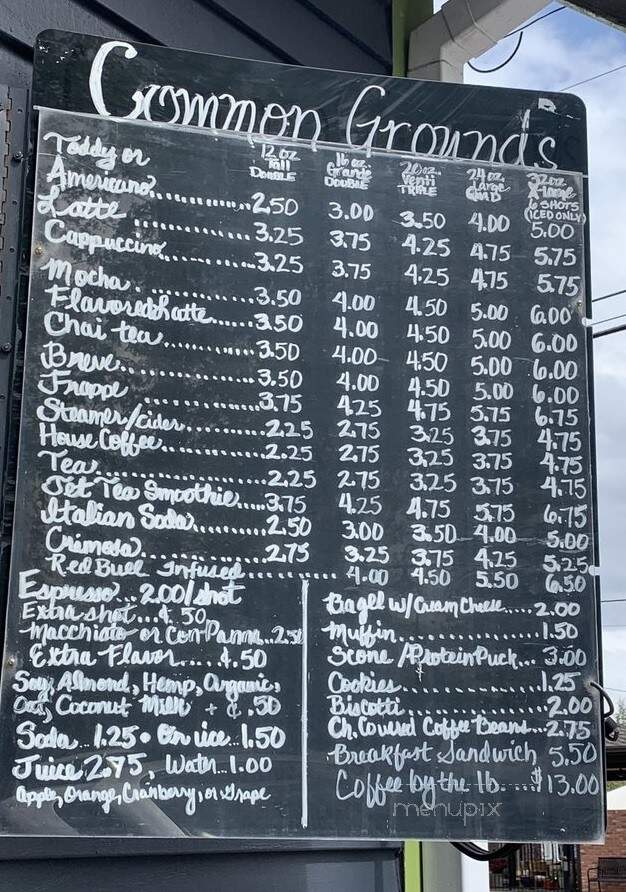 Common Grounds
12 oz Tall DOUBLE 16 oz Grande DOUBLE 20 oz. Venti TRIPLE 24 oz. Large QUAD 32 oz X-Large 6 SHOTS (ICED ONLY)
Toddy or
Americano............2.50 3.00 3.50 4.00 5.00
Latte............3.25 3.75 4.25 4.75 5.75
Cappuccino............3.25 3.75 4.25 4.75 5.75
Mocha............3.50 4.00 4.50 5.00 6.00
Flavored Latte......3.50 4.00 4.50 5.00 6.00
Chai tea............3.50 4.00 4.50 5.00 6.00
Breve............3.50 4.00 4.50 5.00 6.00
Frappe............3.75 4.25 4.75 5.75 6.75
Steamer/cider.........2.25 2.75 3.25 3.75 4.75
House Coffee............2.25 2.75 3.25 3.75 4.75
Tea..................2.25 2.75 3.25 3.75 4.75
Jet Tea Smoothie....3.75 4.25 4.75 5.75 6.75
Italian Soda.........2.50 3.00 3.50 4.00 5.00
Cremosa............2.75 3.25 3.75 4.25 5.25
Red Bull Infused............4.00 4.50 5.50 6.50
Espresso...2.00/shot
Extra shot...¢.50
Macchiato or Con Panna..2.50
Extra Flavor....¢.50
Soy, Almond, Hemp, Organic,
Oat, Coconut Milk + ¢.50
Soda..1.25 • On ice..1.50
Juice 2.75, Water...1.00
Apple, Orange, Cranberry, or Grape
Bagel w/Cream Cheese.....2.00
Muffin...............1.50
Scone/Protein Puck...3.00
Cookies...............1.25
Biscotti...............2.00
Ch. Covered Coffee Beans...2.75
Breakfast Sandwich 5.50
Coffee by the lb.....$13.00
menupix